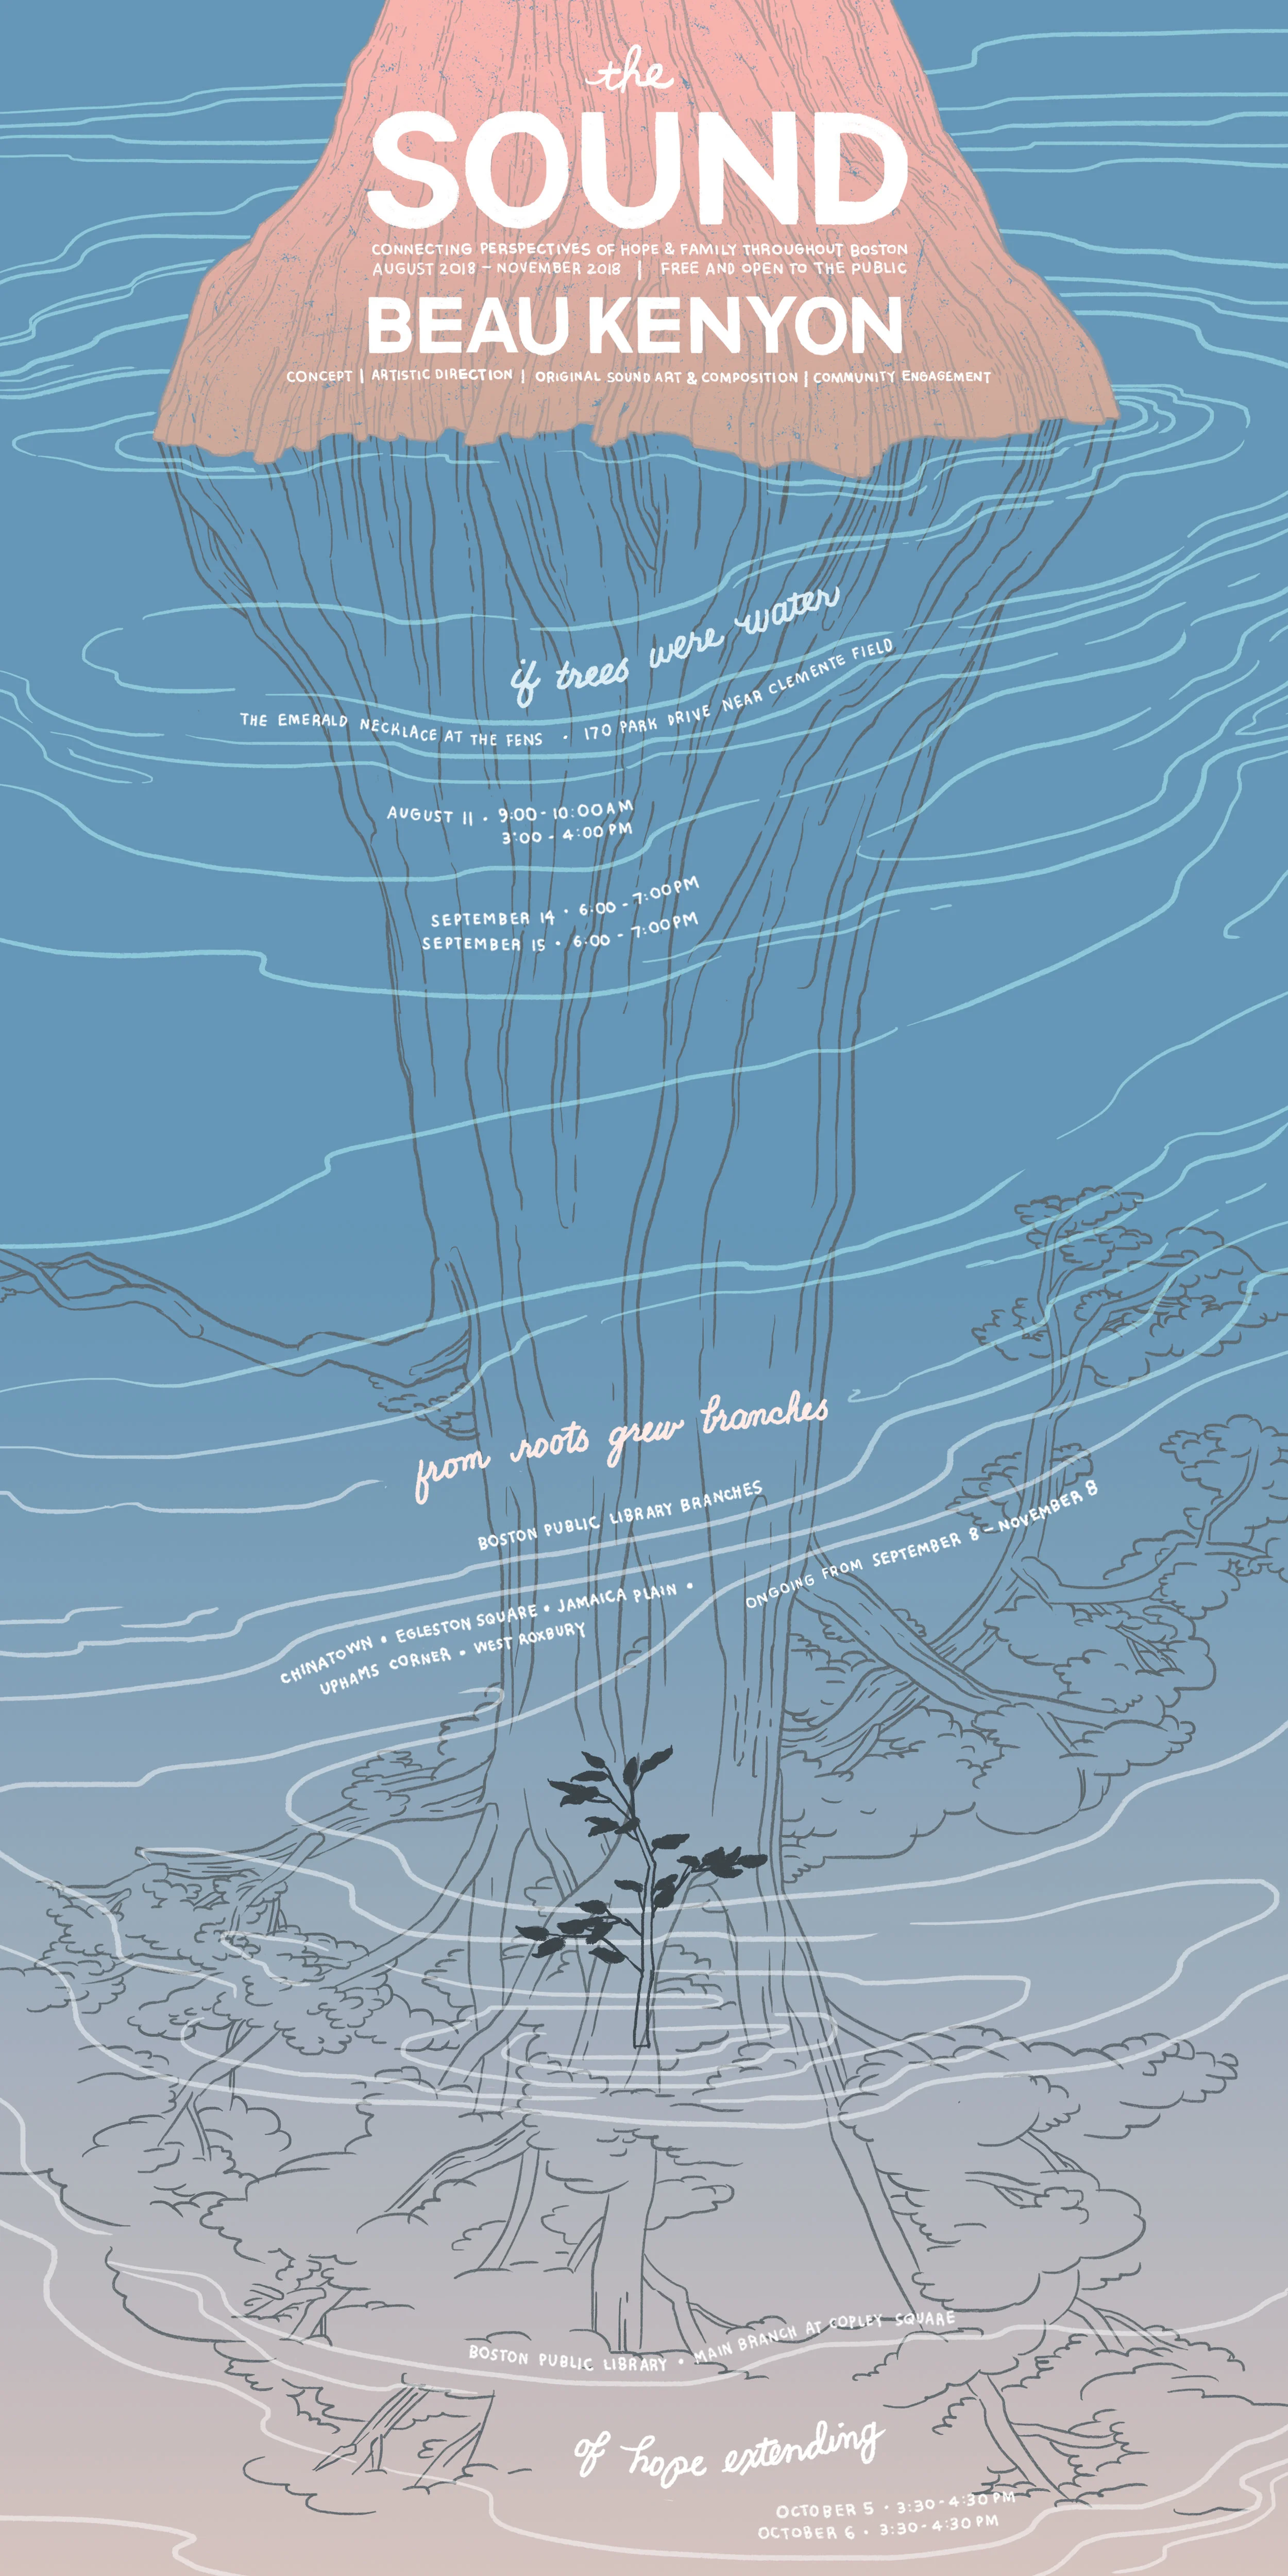 the
SOUND
CONNECTING PERSPECTIVES OF HOPE & FAMILY THROUGHOUT BOSTON
AUGUST 2018 – NOVEMBER 2018 | FREE AND OPEN TO THE PUBLIC
BEAU KENYON
CONCEPT | ARTISTIC DIRECTION | ORIGINAL SOUND ART & COMPOSITION | COMMUNITY ENGAGEMENT
if trees were water
THE EMERALD NECKLACE AT THE FENS • 170 PARK DRIVE NEAR CLEMENTE FIELD
AUGUST 11 • 9:00 - 10:00 AM
3:00 - 4:00 PM
SEPTEMBER 14 • 6:00 - 7:00 PM
SEPTEMBER 15 • 6:00 - 7:00 PM
from roots grew branches
BOSTON PUBLIC LIBRARY BRANCHES
ONGOING FROM SEPTEMBER 8 – NOVEMBER 8
CHINATOWN • EGLESTON SQUARE • JAMAICA PLAIN •
UPHAMS CORNER • WEST ROXBURY
BOSTON PUBLIC LIBRARY • MAIN BRANCH AT COPLEY SQUARE
of hope extending
OCTOBER 5 • 3:30 - 4:30 PM
OCTOBER 6 • 3:30 - 4:30 PM